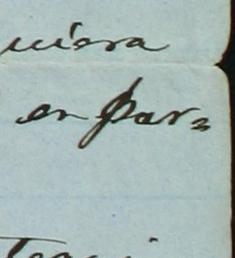 uiera
en par=